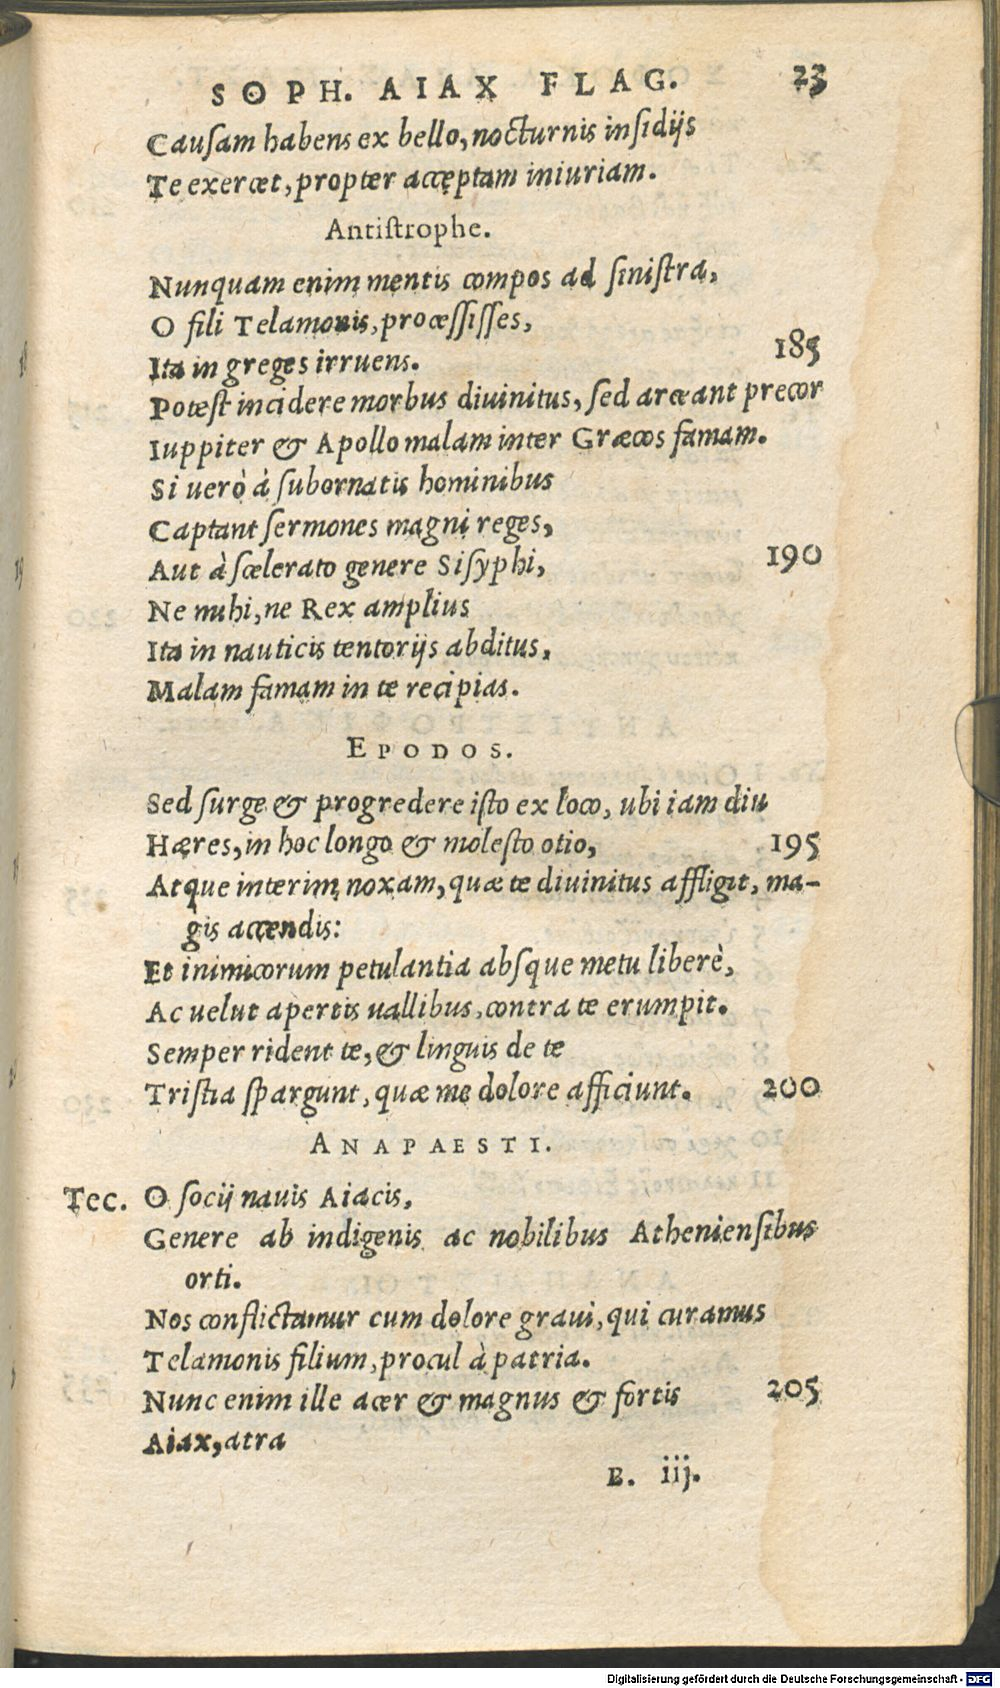 SOPH. AIAX FLAG. 23
Cauſam habens ex bello, nocturnis inſidijs
Te exercet, propter acceptam iniuriam.
Antiſtrophe.
Nunquam enim mentis compos ad ſiniſtra,
O fili Telamonis, proceſſiſſes,
Ita in greges irruens. 185
Poteſt incidere morbus diuinitus, ſed arceant precor
Iuppiter & Apollo malam inter Græcos famam.
Si uerò à ſubornatis hominibus
Captant ſermones magni reges,
Aut à ſcelerato genere Siſyphi, 190
Ne mihi, ne Rex amplius
Ita in nauticis tentorijs abditus,
Malam famam in te recipias.
EPODOS.
Sed ſurge & progredere iſto ex loco, ubi iam diu
Hæres, in hoc longo & moleſto otio, 195
Atque interim noxam, quæ te diuinitus affligit, ma-
gis accendis:
Et inimicorum petulantia abſque metu liberè,
Ac uelut apertis uallibus, contra te erumpit.
Semper rident te, & linguis de te
Triſtia ſpargunt, quæ me dolore afficiunt. 200
ANAPAESTI.
Tec. O ſocij nauis Aiacis,
Genere ab indigenis ac nobilibus Athenienſibus
orti.
Nos conflictamur cum dolore graui, qui curamus
Telamonis filium, procul à patria.
Nunc enim ille acer & magnus & fortis 205
Aiax, atra
B. iij.
Digitalisierung gefördert durch die Deutsche Forschungsgemeinschaft - DFG